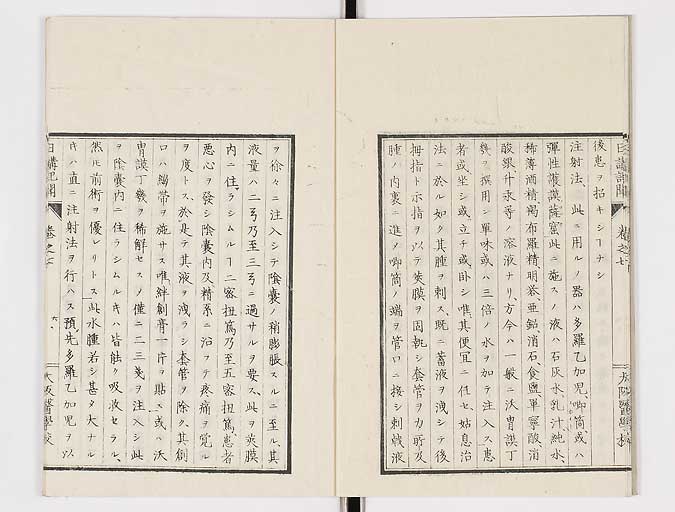 後患ヲ招キシヿナシ
注射法、此ニ用ルノ器ハ多羅乙加児、喞筒或ハ
彈性護謨, 此ニ施スノ液ハ石灰水乳汁純水、
稀薄酒精、褐布羅精明礬、亜鉛、消石、食鹽單寧酸消
酸銀升汞等ノ溶液ナリ、方今ハ一般ニ沃胄謨丁
幾ヲ撰用シ單味或ハ三倍ノ水ヲ加テ注入ス患
者或坐シ或立チ或卧シ唯其便宜ニ任セ姑息治
法ニ於ル如ク其腫ヲ刺ス、既ニ蓄液ヲ洩シテ後
拇指ト示指ヲ以テ莢膜ヲ固執シ套管ヲ力所及
腫ノ内裏ニ進メ喞筒ノ端ヲ管口ニ接シ刺戟液
日講記聞
卷之七
大阪醫學校
ヲ徐々ニ注入シテ陰嚢ノ稍膨脹スルニ至ル、其
液量ハ二弓乃至三弓ニ過サルヲ要ス、此ヲ莢膜
内ニ住ラシムルヿ二密扭篤乃至五密扭篤患者
悪心ヲ發シ陰嚢内及精系ニ沿フテ疼痛ヲ覚ル
ヲ度トス、於是テ其液ヲ洩ラシ套管ヲ除ク、其創
口ハ繃帯ヲ施サス唯絆創膏一片ヲ貼ス、或ハ沃
胄謨丁幾ヲ稀解セスノ僅ニ二三戔ヲ注入シ此
ヲ陰嚢内ニ住ラシムルキハ皆能ク吸收セラル、
然ルニ前術ヲ優レリトス、此水腫若シ甚タ大ナル
キハ直ニ注射法ヲ行ハス、預先多羅乙加児ヲ以
日講記聞
卷之七
大阪醫學校